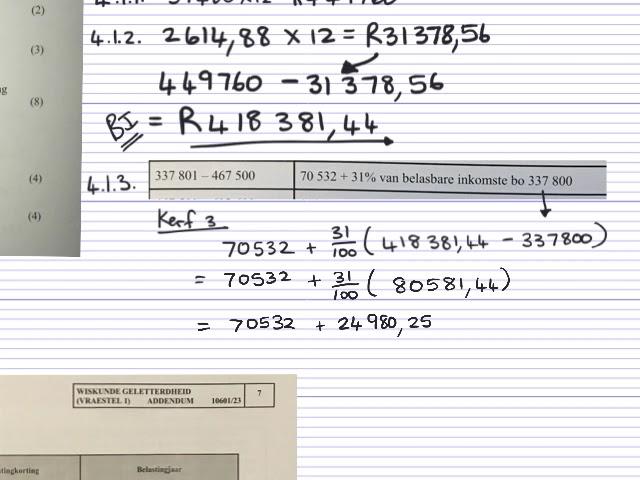 (2)
4.1.2. 2614,88 × 12 = R31378,56
(3)
449760 – 31 378,56
(8)
BI = R418 381,44
(4)
4.1.3. 337 801 – 467 500 70 532 + 31% van belasbare inkomste bo 337 800
(4)
Kerf 3
70532 + 31/100 ( 418 381,44 – 337800)
= 70532 + 31/100 ( 80581,44)
= 70532 + 24 980,25
WISKUNDE GELETTERDHEID
(VRAESTEL 1) ADDENDUM 10601/23 7
Belastingjaar